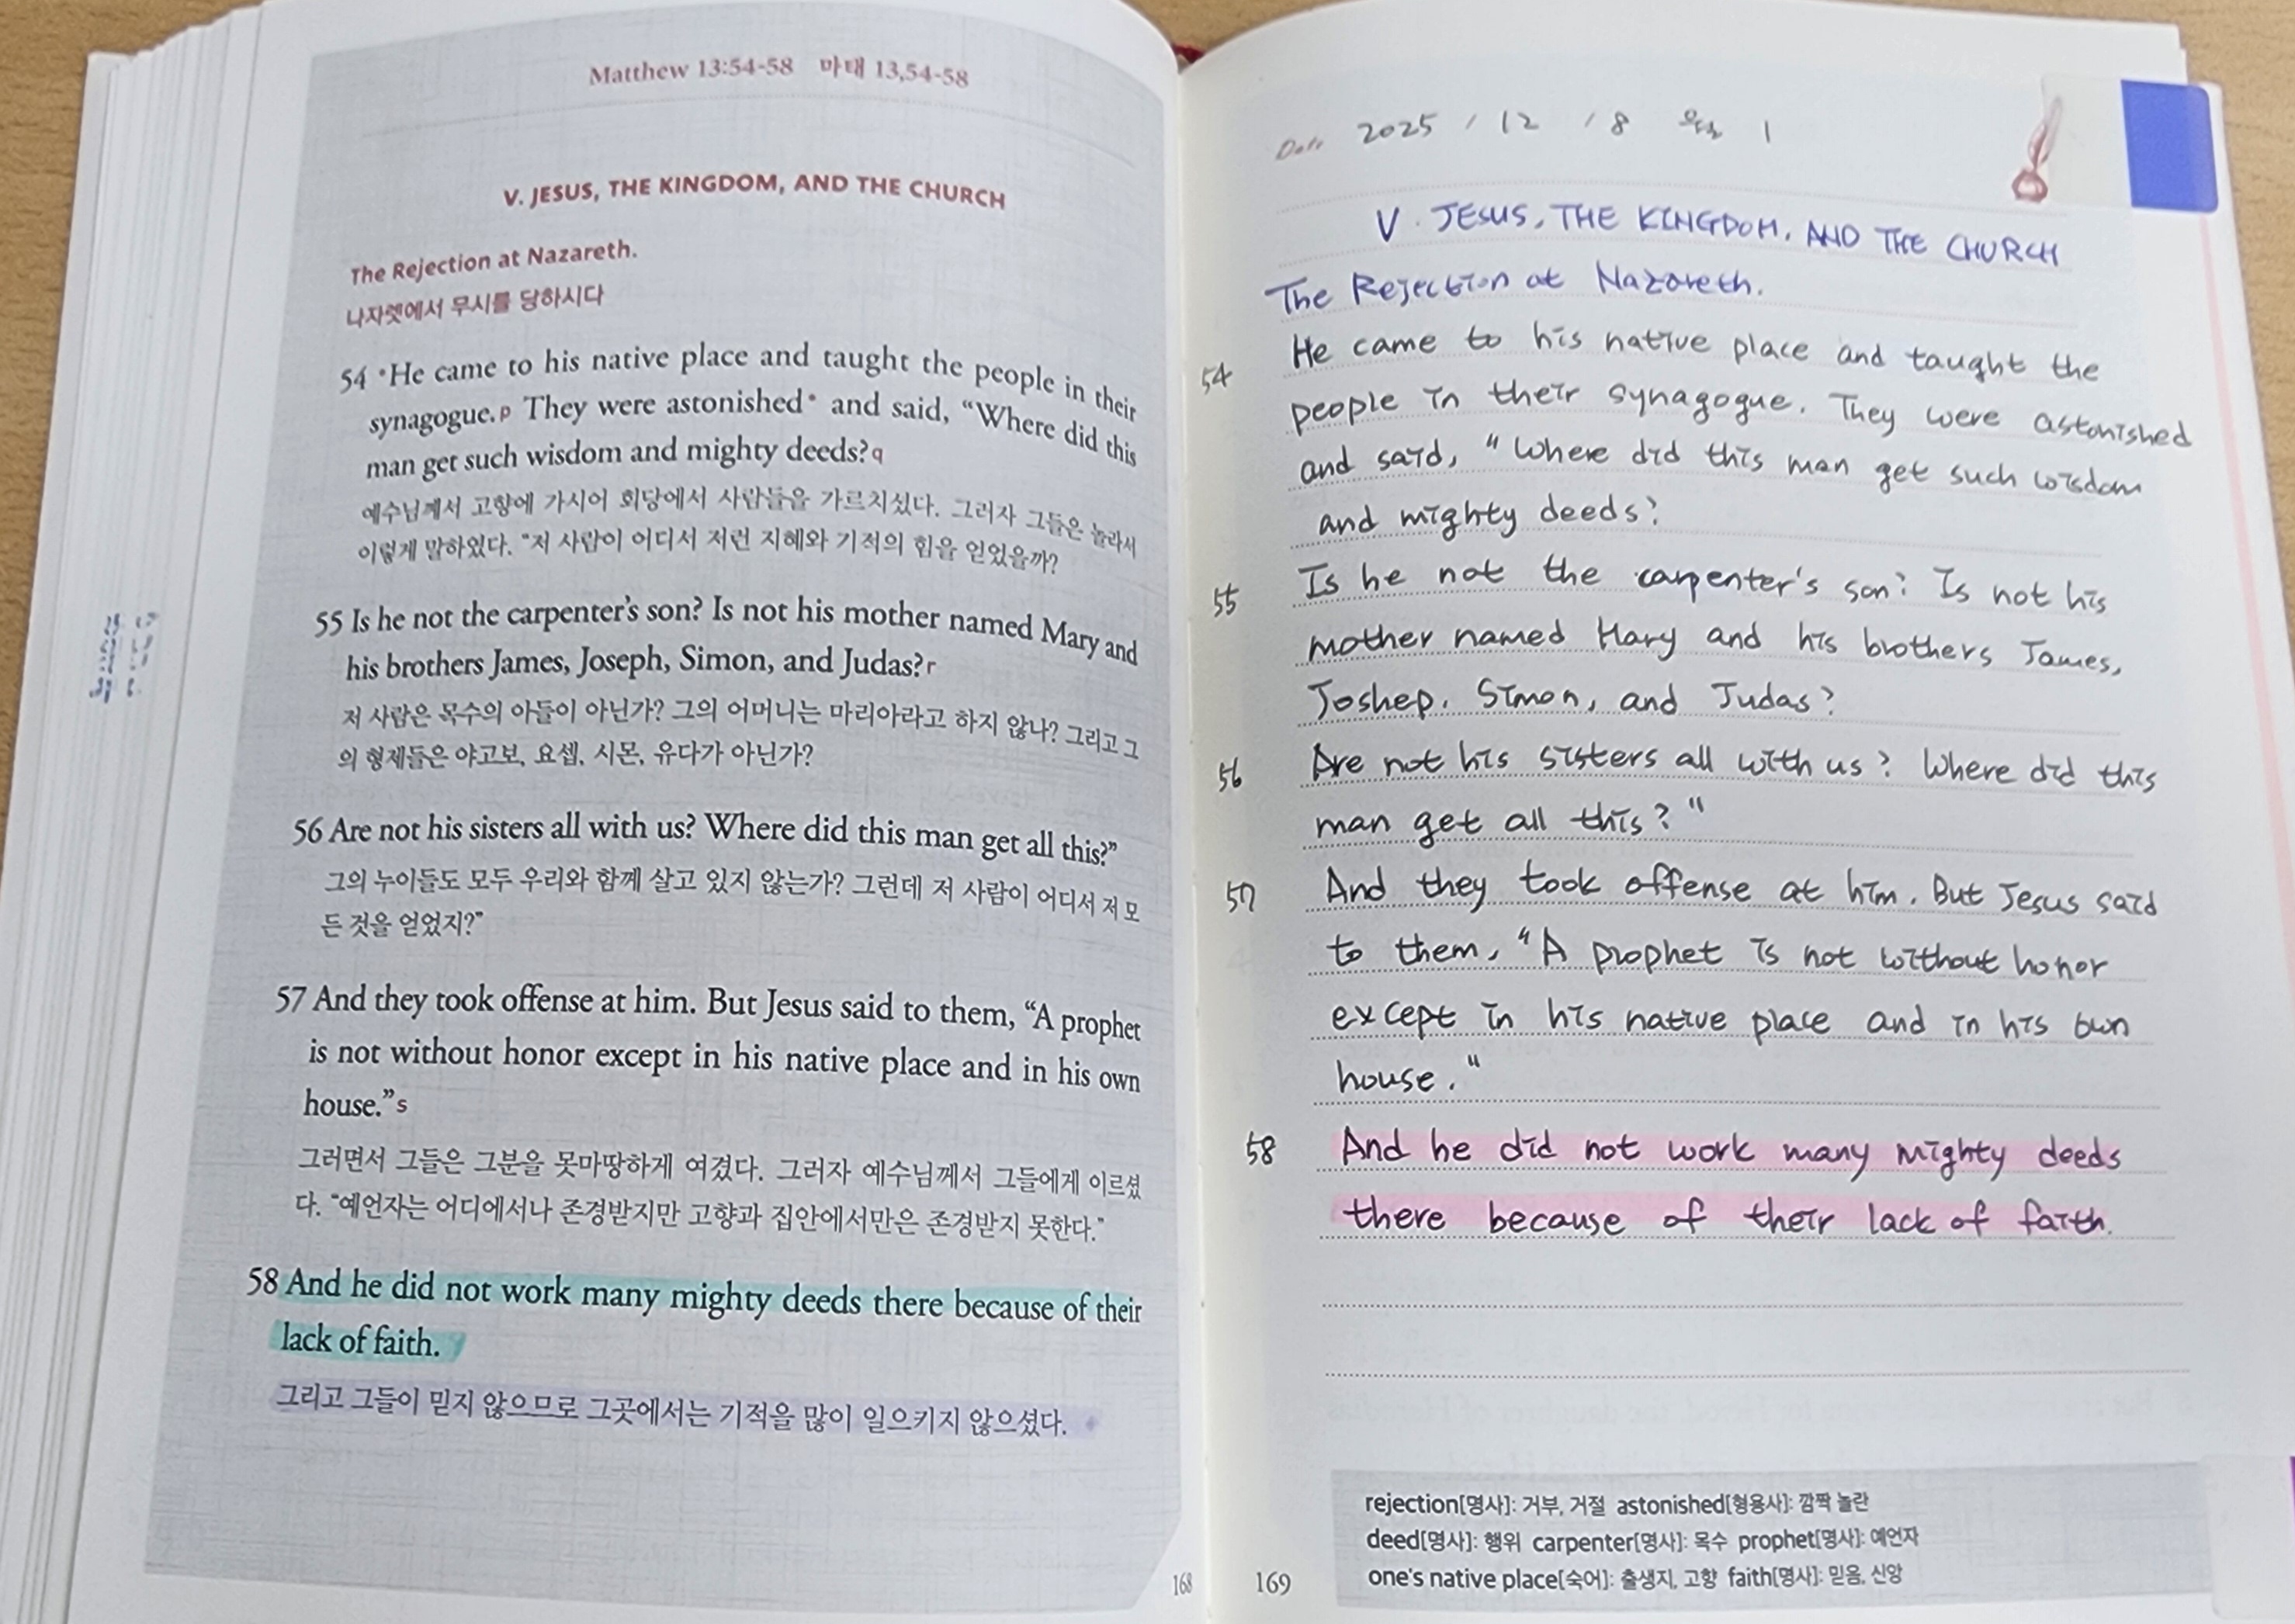 Matthew 13:54-58 마태 13,54-58
V. JESUS, THE KINGDOM, AND THE CHURCH
The Rejection at Nazareth.
나자렛에서 무시를 당하시다
54 *He came to his native place and taught the people in their
synagogue.p They were astonished* and said, “Where did this
man get such wisdom and mighty deeds?q
예수님께서 고향에 가시어 회당에서 사람들을 가르치셨다. 그러자 그들은 놀라서
이렇게 말하였다. “저 사람이 어디서 저런 지혜와 기적의 힘을 얻었을까?
55 Is he not the carpenter’s son? Is not his mother named Mary and
his brothers James, Joseph, Simon, and Judas?r
저 사람은 목수의 아들이 아닌가? 그의 어머니는 마리아라고 하지 않나? 그리고 그
의 형제들은 야고보, 요셉, 시몬, 유다가 아닌가?
56 Are not his sisters all with us? Where did this man get all this?”
그의 누이들도 모두 우리와 함께 살고 있지 않는가? 그런데 저 사람이 어디서 저 모
든 것을 얻었지?”
57 And they took offense at him. But Jesus said to them, “A prophet
is not without honor except in his native place and in his own
house.”s
그러면서 그들은 그분을 못마땅하게 여겼다. 그러자 예수님께서 그들에게 이르셨
다. “예언자는 어디에서나 존경받지만 고향과 집안에서만은 존경받지 못한다.”
58 And he did not work many mighty deeds there because of their
lack of faith.
그리고 그들이 믿지 않으므로 그곳에서는 기적을 많이 일으키지 않으셨다.
168
Date 2025 / 12 / 8 1
V. JESUS, THE KINGDOM, AND THE CHURCH
The Rejection at Nazareth.
54 He came to his native place and taught the
people in their synagogue. They were astonished
and said, “Where did this man get such wisdom
and mighty deeds?
55 Is he not the carpenter's son? Is not his
mother named Mary and his brothers James,
Joshep, Simon, and Judas?
56 Are not his sisters all with us? Where did this
man get all this?"
57 And they took offense at him. But Jesus said
to them, “A prophet is not without honor
except in his native place and in his own
house."
58 And he did not work many mighty deeds
there because of their lack of faith.
rejection[명사]: 거부, 거절 astonished[형용사]: 깜짝 놀란
deed[명사]: 행위 carpenter[명사]: 목수 prophet[명사]: 예언자
one's native place[숙어]: 출생지, 고향 faith[명사]: 믿음, 신앙
169